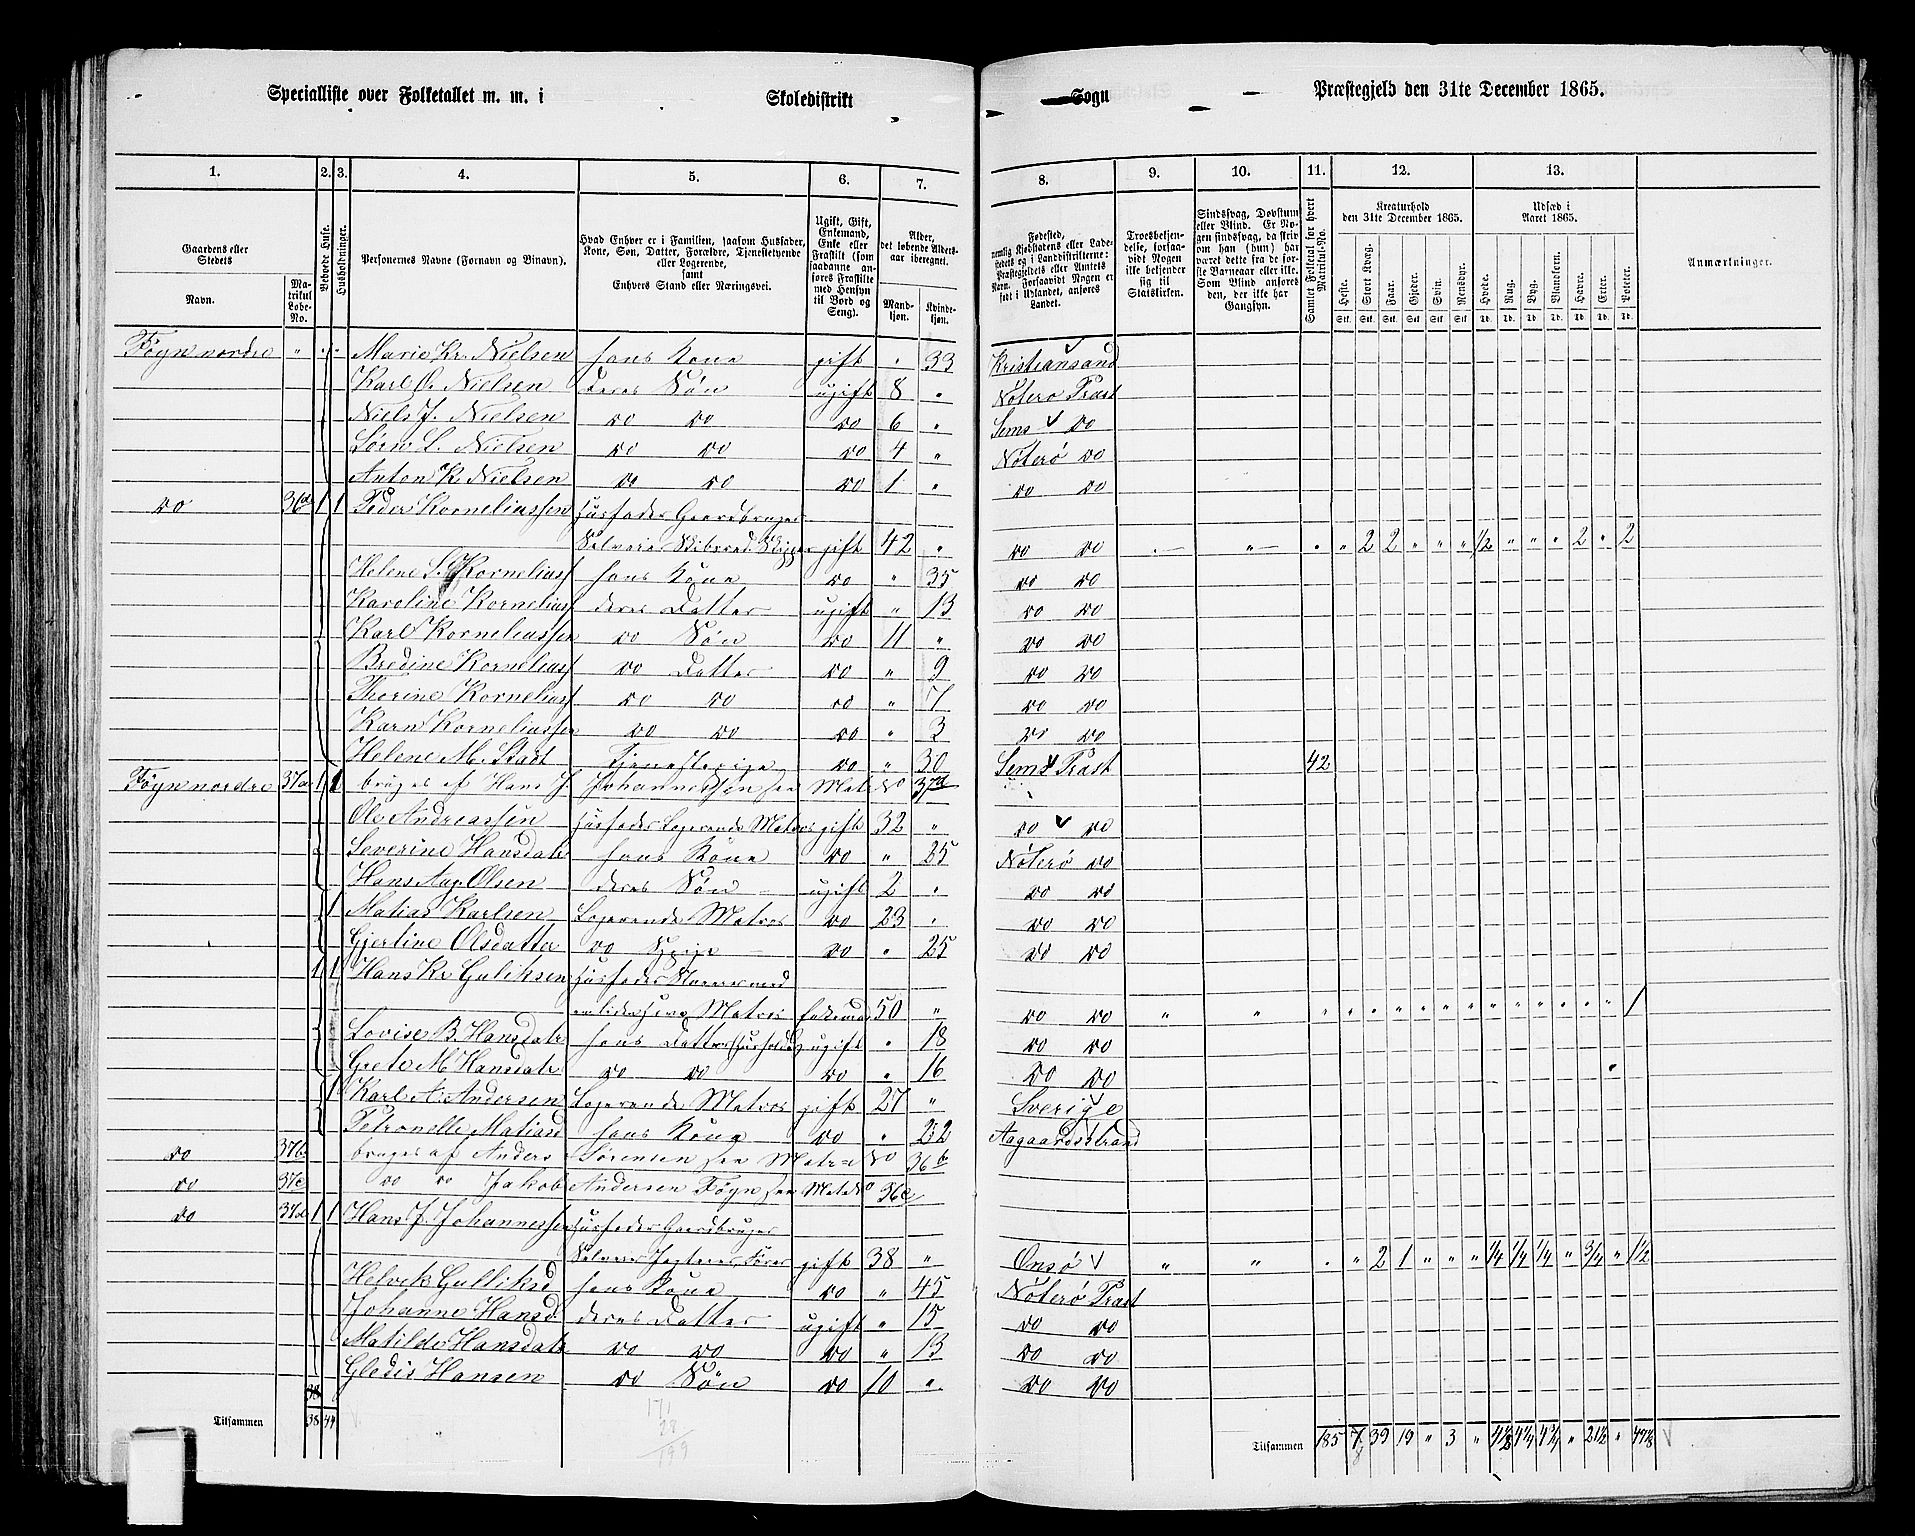 Specialliste over Folketallet m. m. i Skoledistrikt Sogn Præstegjeld den 31te December 1865.
1. 2. 3. 4. 5. 6. 7. 8. 9. 10. 11. 12. 13.
Gaardens eller Stedets
Navn.
Matrikul Løbe-No.
Beboede Huse.
Husholdninger.
Personernes Navne (Fornavn og Binavn).
Hvad Enhver er i Familien, saasom Husfader, Kone, Søn, Datter, Forældre, Tjenestetyende eller Logerende, samt Enhvers Stand eller Næringsvei.
Ugift, Gift, Enkemand, Enke eller Fraskilt (som saadanne anføres Fraskilte med Hensyn til Bord og Seng).
Alder, det løbende Aldersaar iberegnet.
Mandkjøn. Kvindekjøn.
Fødested,
Troesbekjendelse, forsaavidt Nogen ikke bekjender sig til Statskirken.
Sindssvag, Døvstum eller Blind. Er Nogen sindssvag, da skriv om han (hun) har været dette fra de første Barneaar eller ikke. Som Blind anføres den, der ikke har Gangsyn.
Samlet Folketal for hvert Matrikul-No.
Kreaturhold den 31te December 1865.
Heste. Stort Kvæg. Faar. Gjeder. Svin. Rensdyr.
Udsæd i Aaret 1865.
Hvede. Rug. Byg. Blandkorn. Havre. Erter. Poteter.
Anmærkninger.
Føyn nordre " Marie Kr. Nielsen hans Kone gift " 33 Kristiansand
Karl O. Nielsen deres Søn ugift 8 " Nøterø Præst
Niels J. Nielsen do do do 6 " Sems do
Sørin L. Nielsen do do do 4 " Nøterø do
Anton K. Nielsen do do do 1 " do do
do 36d 1 1 Peder Korneliussen Husfader Gaardbruger
Selveier Skibsred. Skipper gift 42 " do do " 2 2 " " " 1/2 " " " 2 " 2
Helene S. Korneliuss hans Kone do " 35 do do
Karoline Korneliuss deres Datter ugift " 13 do do
Karl Korneliussen do Søn do 11 " do do
Bredine Korneliuss do Datter do " 9 do do
Therine Korneliuss do do do " 7 do do
Karn Korneliussen do do do " 3 do do
Helene M. Stadt Tjenestepige do " 30 Sems Præst 42
Føyn nordre 37a 1 1 bruges af Hans J. Johannessen see Matr No 37d
Ole Andreassen Husfader Logerende Matros gift 32 " do do
Severine Hansdatr hans Kone do " 25 Nøterø do
Hans Aug. Olsen deres Søn ugift 2 " do do
1 Matias Karlsen Logerende Matros do 23 " do do
Gjertine Olsdatter do do " 25 do do
1 1 Hans Kr. Guliksen Husfader Huusmand
Matros Enkemand 50 " do do " " " " " " " " " " " " " " " 1
Lovise B. Hansdatr hans Datter Husholder ugift " 18 do do
Grete M. Hansdatr do do do " 16 do do
1 Karl A. Andersen Logerende Matros gift 27 " Sverige
Petronelle Matiasd hans Kone do " 22 Aagaardsstrand
do 37b bruges af Anders Sørensen see Matr No 36b
do 37c do do Jakob Andersen Føyn see Matr No 36c
do 37d 1 1 Hans J. Johannessen Husfader Gaardbruger
Selveier Jagteier, Fører gift 38 " Onsø " " " " 2 1 " " " 1/4 1/4 1/4 " 3/4 " 1 1/2
Helvik Gulliksd hans Kone do " 45 Nøterø Præst
Johanne Hansd. deres Datter ugift " 15 do do
Matilde Hansdatr do do do " 13 do do
Gledis Hansen do Søn do 10 " do do
38
Tilsammen 38 44
171
28
199
Tilsammen 185 7 39 19 " 3 "